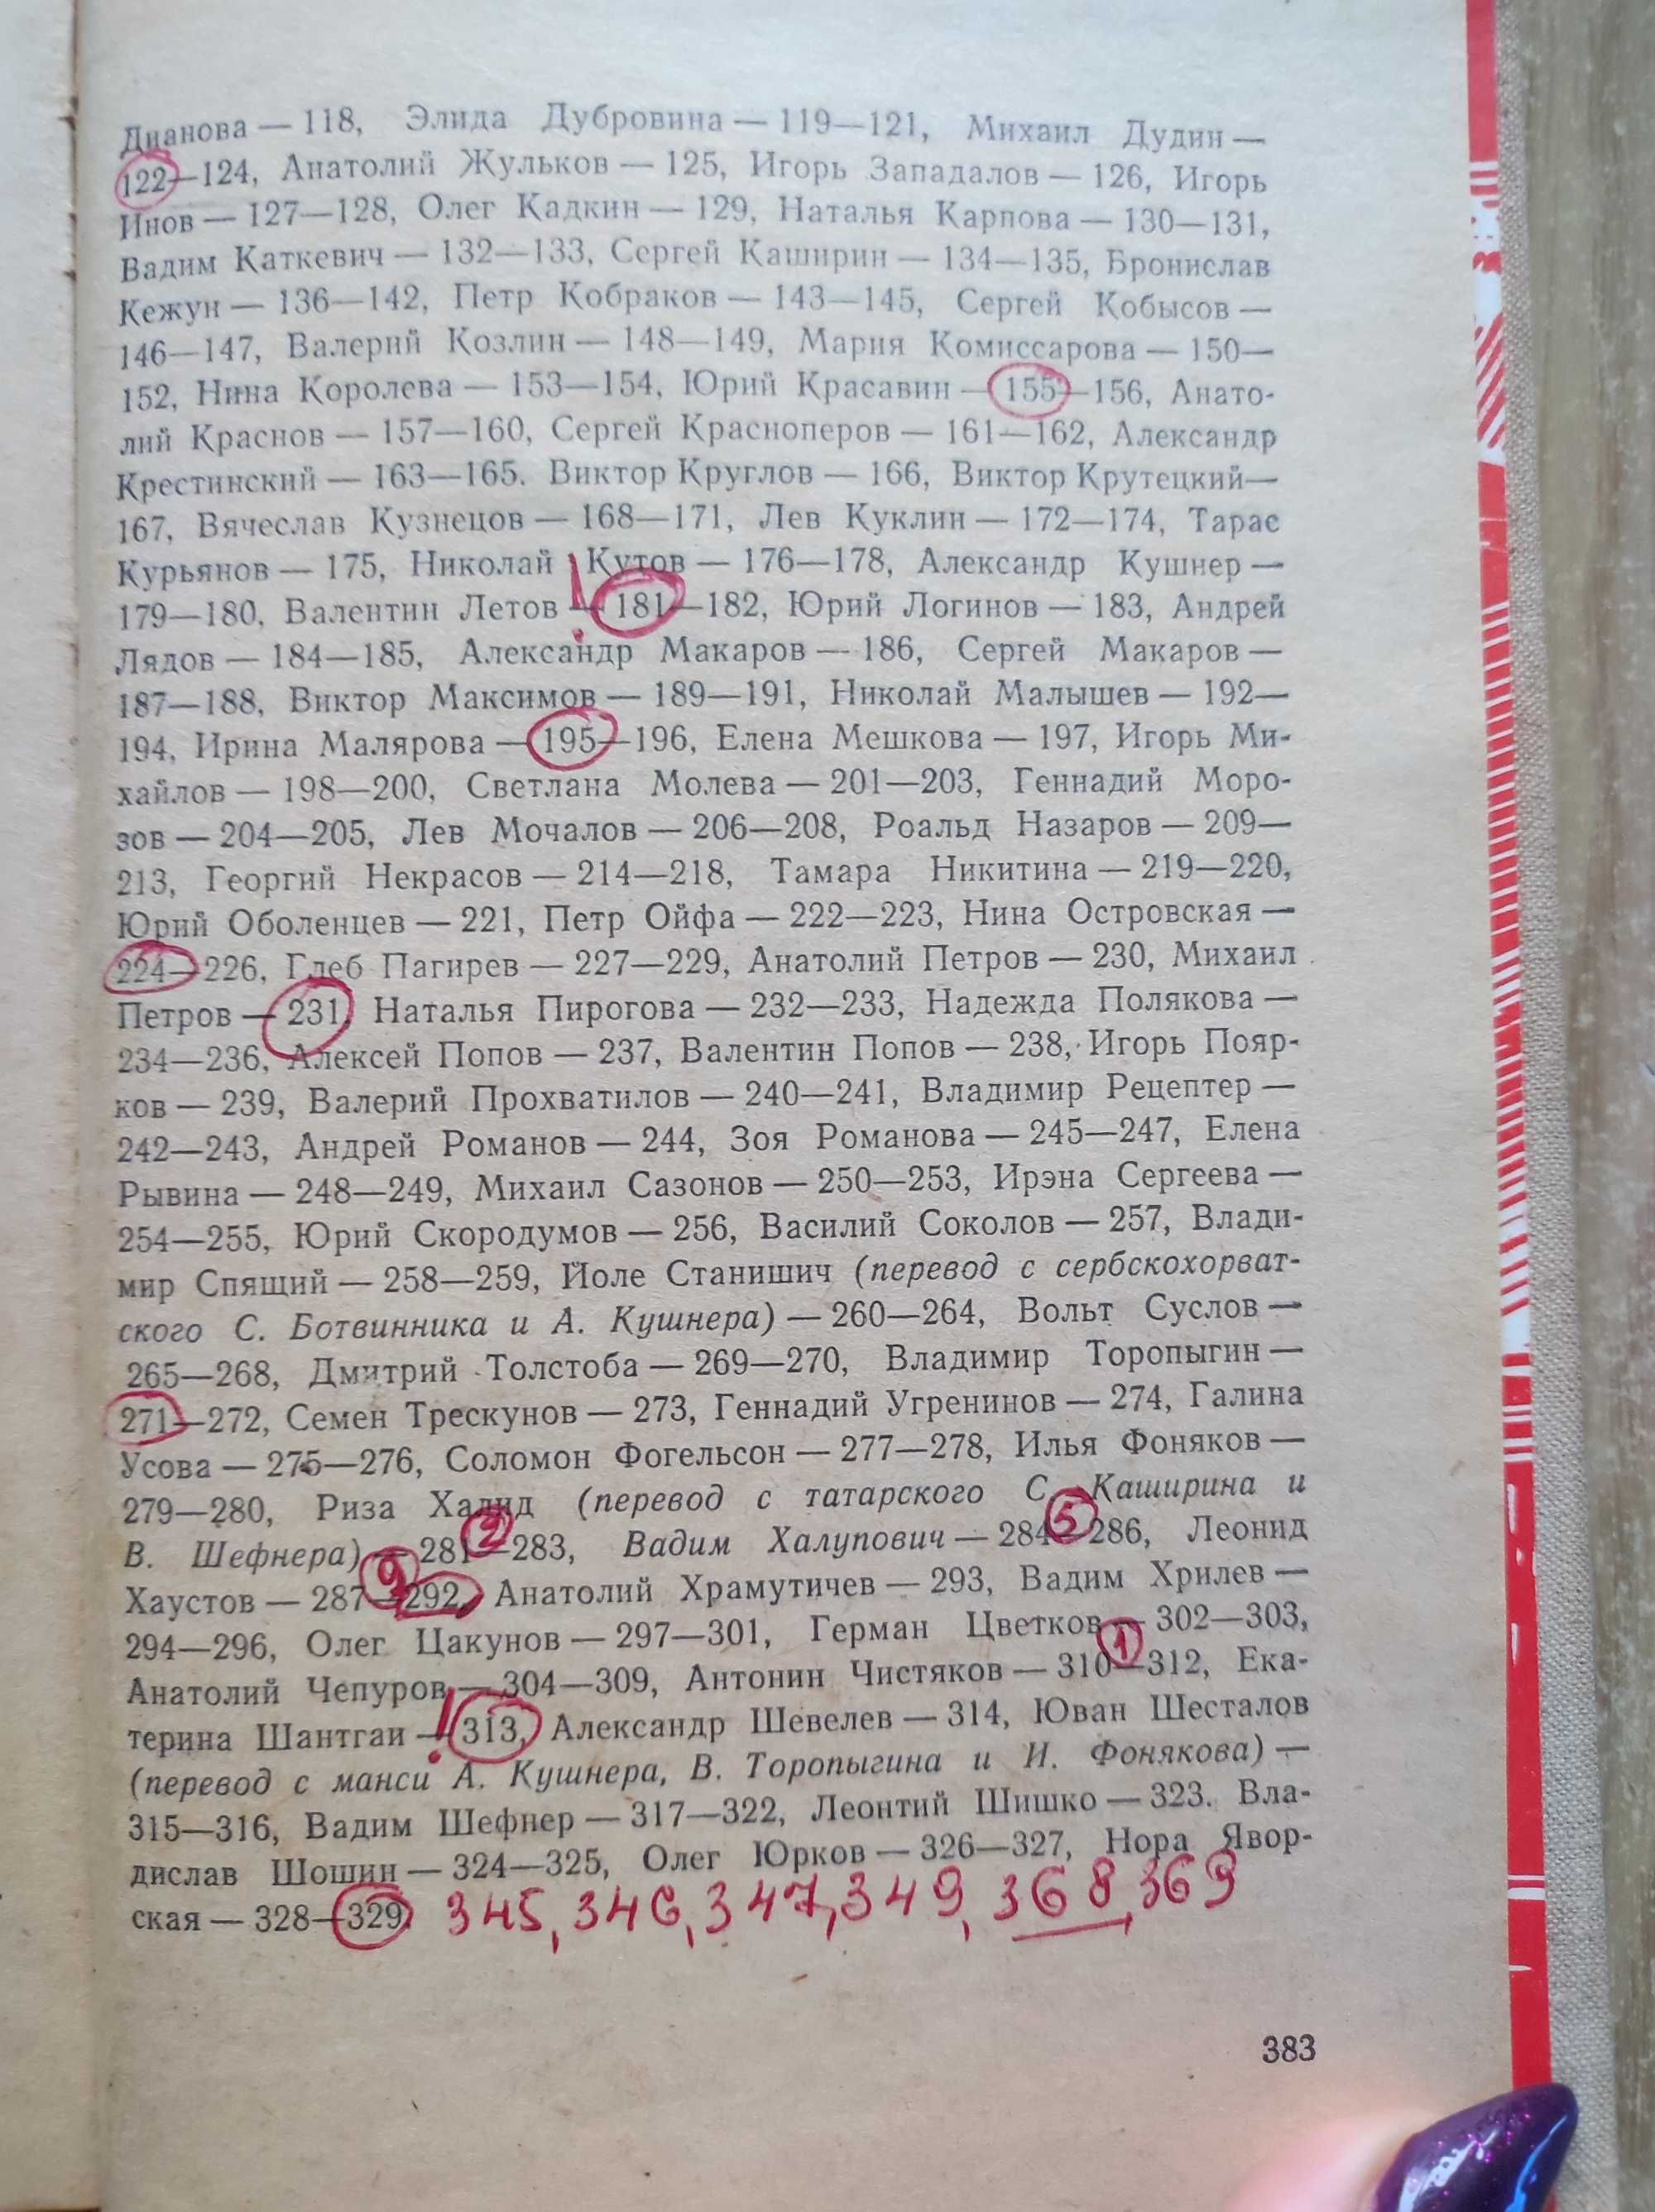 Дианова — 118, Элида Дубровина — 119—121, Михаил Дудин —
122—124, Анатолий Жульков — 125, Игорь Западалов — 126, Игорь
Инов — 127—128, Олег Кадкин — 129, Наталья Карпова — 130—131,
Вадим Каткевич — 132—133, Сергей Каширин — 134—135, Бронислав
Кежун — 136—142, Петр Кобраков — 143—145, Сергей Кобысов —
146—147, Валерий Козлин — 148—149, Мария Комиссарова — 150—
152, Нина Королева — 153—154, Юрий Красавин — 155—156, Анато-
лий Краснов — 157—160, Сергей Красноперов — 161—162, Александр
Крестинский — 163—165. Виктор Круглов — 166, Виктор Крутецкий—
167, Вячеслав Кузнецов — 168—171, Лев Куклин — 172—174, Тарас
Курьянов — 175, Николай Кутов — 176—178, Александр Кушнер —
179—180, Валентин Летов ! — 181—182, Юрий Логинов — 183, Андрей
Лядов — 184—185, Александр Макаров — 186, Сергей Макаров —
187—188, Виктор Максимов — 189—191, Николай Малышев — 192—
194, Ирина Малярова — 195—196, Елена Мешкова — 197, Игорь Ми-
хайлов — 198—200, Светлана Молева — 201—203, Геннадий Моро-
зов — 204—205, Лев Мочалов — 206—208, Роальд Назаров — 209—
213, Георгий Некрасов — 214—218, Тамара Никитина — 219—220,
Юрий Оболенцев — 221, Петр Ойфа — 222—223, Нина Островская —
224—226, Глеб Пагирев — 227—229, Анатолий Петров — 230, Михаил
Петров — 231, Наталья Пирогова — 232—233, Надежда Полякова —
234—236, Алексей Попов — 237, Валентин Попов — 238, Игорь Пояр-
ков — 239, Валерий Прохватилов — 240—241, Владимир Рецептер —
242—243, Андрей Романов — 244, Зоя Романова — 245—247, Елена
Рывина — 248—249, Михаил Сазонов — 250—253, Ирэна Сергеева —
254—255, Юрий Скородумов — 256, Василий Соколов — 257, Влади-
мир Спящий — 258—259, Йоле Станишич (перевод с сербскохорват-
ского С. Ботвинника и А. Кушнера) — 260—264, Вольт Суслов —
265—268, Дмитрий Толстоба — 269—270, Владимир Торопыгин —
271—272, Семен Трескунов — 273, Геннадий Угренинов — 274, Галина
Усова — 275—276, Соломон Фогельсон — 277—278, Илья Фоняков —
279—280, Риза Халид (перевод с татарского С. Каширина и
В. Шефнера) — 281 2 —283, Вадим Халупович — 284 5 —286, Леонид
Хаустов — 287 9 —292, Анатолий Храмутичев — 293, Вадим Хрилев —
294—296, Олег Цакунов — 297—301, Герман Цветков — 302—303,
Анатолий Чепуров — 304—309, Антонин Чистяков — 310 1 —312, Ека-
терина Шантгаи — ! 313, Александр Шевелев — 314, Юван Шесталов
(перевод с манси А. Кушнера, В. Торопыгина и И. Фонякова) —
315—316, Вадим Шефнер — 317—322, Леонтий Шишко — 323. Вла-
дислав Шошин — 324—325, Олег Юрков — 326—327, Нора Явор-
ская — 328—329. 345, 346, 347, 349, 368, 369
383